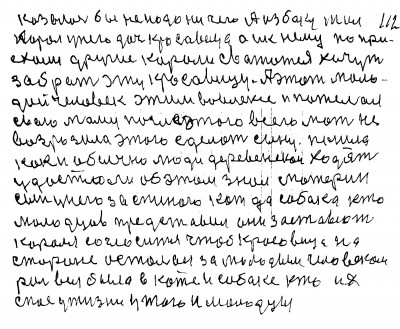 казался бы неподо ничего А избаку жил 112
Король у него доч красавица а ик нему по при-
ехали другие короли сватотся хочут
забрат эту красавицу. А этот моло-
дой человек этим вовлеке и потслал
свою маму после этого всего мат не
возрозила этого сделат сыну. пошла
как и обычно люди деревенской ходят
у дост об этом знои старыи
сын у него за спиного кот да собака кто
молодцов представил они заставют
короля согласится чтоб красовица на
стороне остолас за молодым человеком
рол вся была в коте и собаке кто их
спас у жизни у того и молодцы